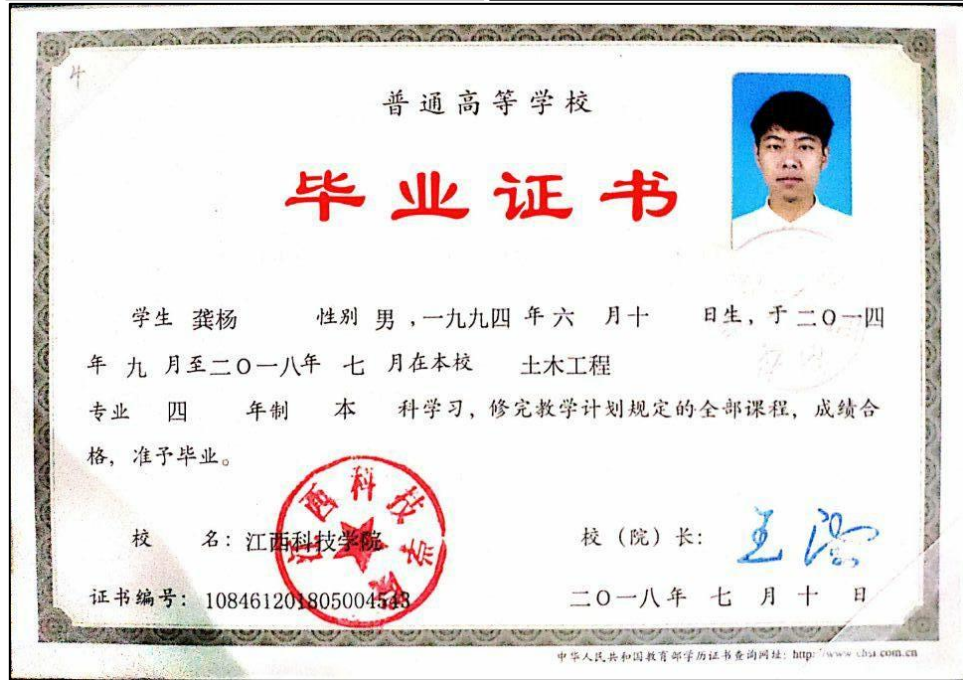 普通高等学校
毕业证书
学生 龚杨 性别 男，一九九四 年 六 月 十 日生，于 二〇一四
年 九 月至二〇一八年 七 月在本校 土木工程
专业 四 年制 本 科学习，修完教学计划规定的全部课程，成绩合
格，准予毕业。
江西科技学院
校 名：江西科技学院 校（院）长：
证书编号：108461201805004543 二〇一八年 七 月 十 日
中华人民共和国教育部学历证书查询网址：http://www.chsi.com.cn